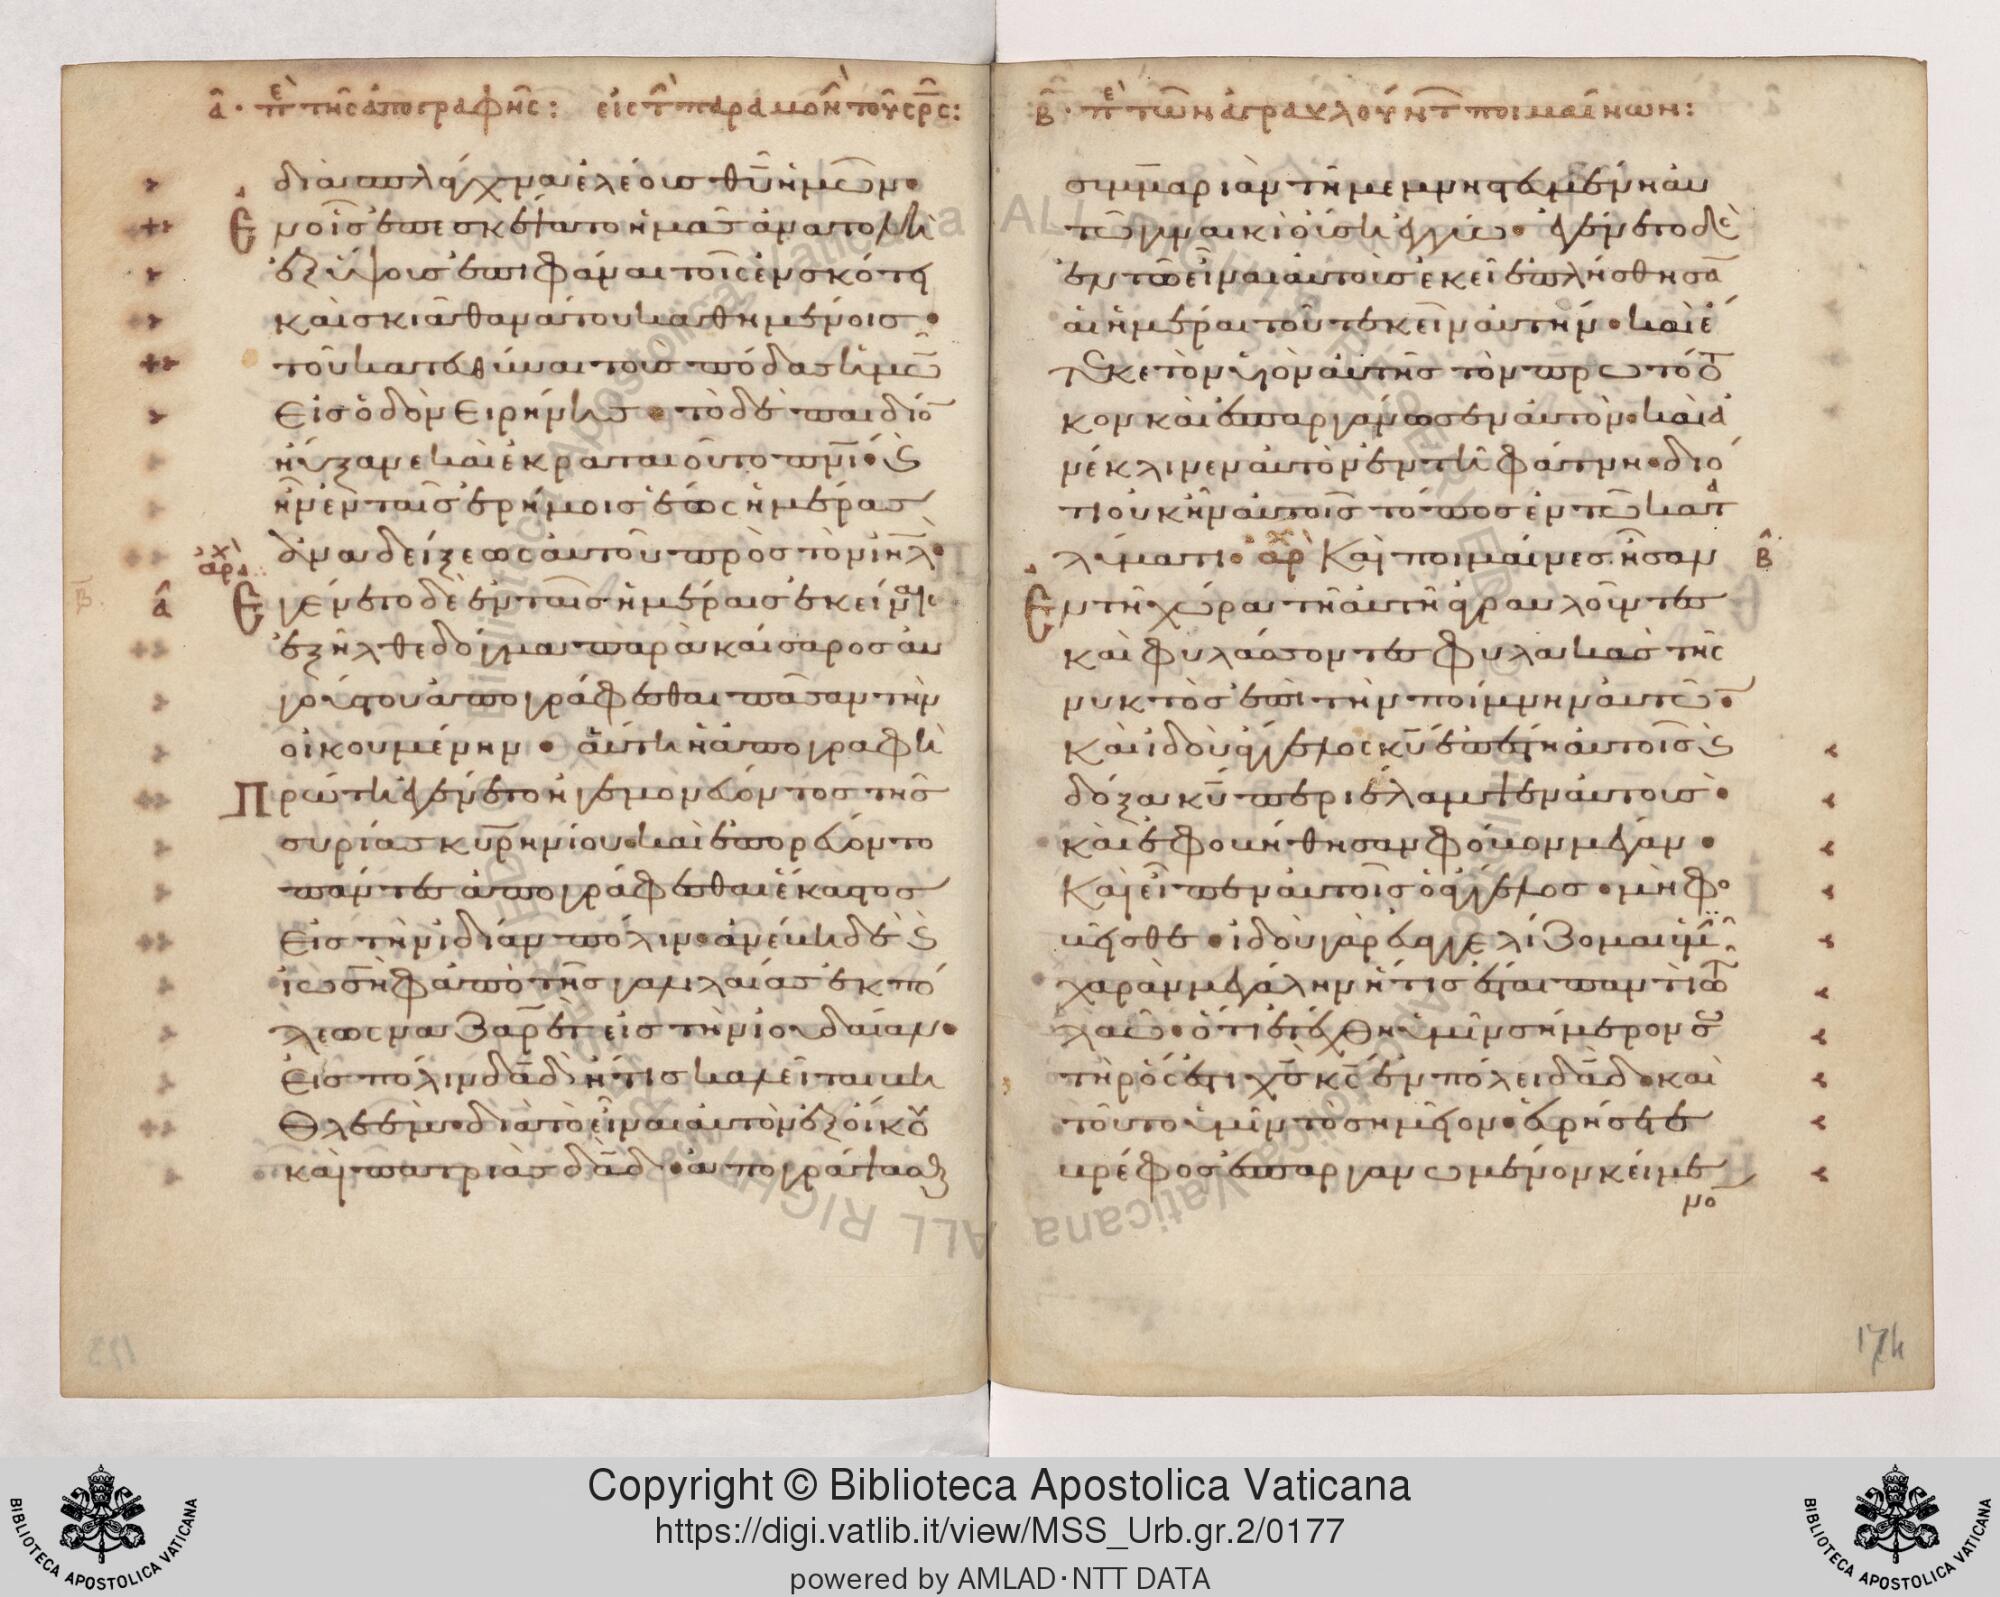 α̂ · πὲ τῆς ἀπογραφῆς: εἰς τ̀ παραμονὴν τοῦ σρ̅ς:
διὰ σπλάγχνα ἐλέους θυ̅ ἡμῶν·
Ἐν οἷς ἐπεσκέψατο ἡμᾶς ἀνατολὴ
ἐξ ὕψους ἐπιφάναι τοῖς ἐν σκότει
καὶ σκιᾶ θανάτου καθημένοις·
τοῦ κατευθύναι τοὺς πόδας ἡμῶ̅
εἰς ὁδὸν εἰρήνης· τὸ δὲ παιδίο̅
ηὔξανε καὶ ἐκραταιοῦτο πνι̅· ϗ
ἦν ἐν ταῖς ἐρήμοις ἕως ἡμέρας
ἀναδείξεως αὐτοῦ πρὸς τὸν ιη̅λ·
ἀρχ
α̂
Ἐγένετο δὲ ἐν ταῖς ἡμέραις ἐκείναις
ἐξῆλθε δόγμα παρὰ καίσαρος αὐ
γούστου ἀπογράφεσθαι πᾶσαν τὴν
οἰκουμένην· αὕτη ἡ ἀπογραφὴ
Πρώτη ἐγένετο ἡγεμονεύοντος τῆς
συρίας κυρηνίου· καὶ ἐπορεύοντο
πάντες ἀπογράφεσθαι ἕκαστος
εἰς τὴν ἰδίαν πόλιν· ἀνέβη δὲ ϗ
ἰωσὴφ ἀπὸ τῆς γαλιλαίας ἐκ πό
λεως ναζαρὲτ εἰς τὴν ἰουδαίαν·
εἰς πόλιν δα̅δ ἥτις καλεῖται βη
θλεέμ· διὰ τὸ εἶναι αὐτὸν ἐξ οἴκου
καὶ πατριὰς δα̅δ· ἀπογράψασθ
β̂ · πὲ τῶν ἀγραυλούντ ποιμαίνων:
σὺν μαριὰμ τῆ μεμνηστευμένη αὐ
τῶ γυναικὶ οὔση ἐγγύω· ἐγένετο δὲ
ἐν τῶ εἶναι αὐτοὺς ἐκεῖ ἐπλήσθησα̅
αἱ ἡμέραι τοῦ τεκεῖν αὐτήν· καὶ ἔ
τεκε τὸν υἱὸν αὐτῆς τὸν πρωτότο
κον καὶ ἐσπαργάνωσεν αὐτὸν· καὶ ἀ
νέκλινεν αὐτὸν ἐν τῆ φάτνη· διό
τι οὐκ ἦν αὐτοῖς τόπος ἐν τῶ κατα
λύματι· ἀρχ Καὶ ποιμένες ἦσαν
β̂
Ἐν τῆ χώρα τῆ αὐτῆ ἀγραυλοῦντες
καὶ φυλάσσοντες φυλακὰς τῆς
νυκτὸς ἐπὶ τὴν ποίμνην αὐτῶ̅·
Καὶ ἰδοὺ ἄγγελος κυ̅ ἐπέστη αὐτοῖς ϗ
δόξα κυ̅ περιέλαμψεν αὐτούς·
καὶ ἐφοβήθησαν φόβον μέγαν·
Καὶ εἶπεν αὐτοῖς ὁ ἄγγελος· μὴ φο
βεῖσθε· ἰδοὺ γὰρ εὐαγγελίζομαι ὑμῖ̅
χαρὰν μεγάλην ἥτις ἔσται παντὶ τῶ
λαῶ· ὅτι ἐτέχθη ὑμῖν σήμερον σω
τὴρ ὅς ἐστι χς̅ κς̅ ἐν πόλει δα̅δ· καὶ
τοῦτο ὑμῖν τὸ σημεῖον· εὑρήσετε
βρέφος ἐσπαργανωμένον κείμε
νο
174
Copyright © Biblioteca Apostolica Vaticana
https://digi.vatlib.it/view/MSS_Urb.gr.2/0177
powered by AMLAD·NTT DATA
BIBLIOTECA APOSTOLICA VATICANA
BIBLIOTECA APOSTOLICA VATICANA